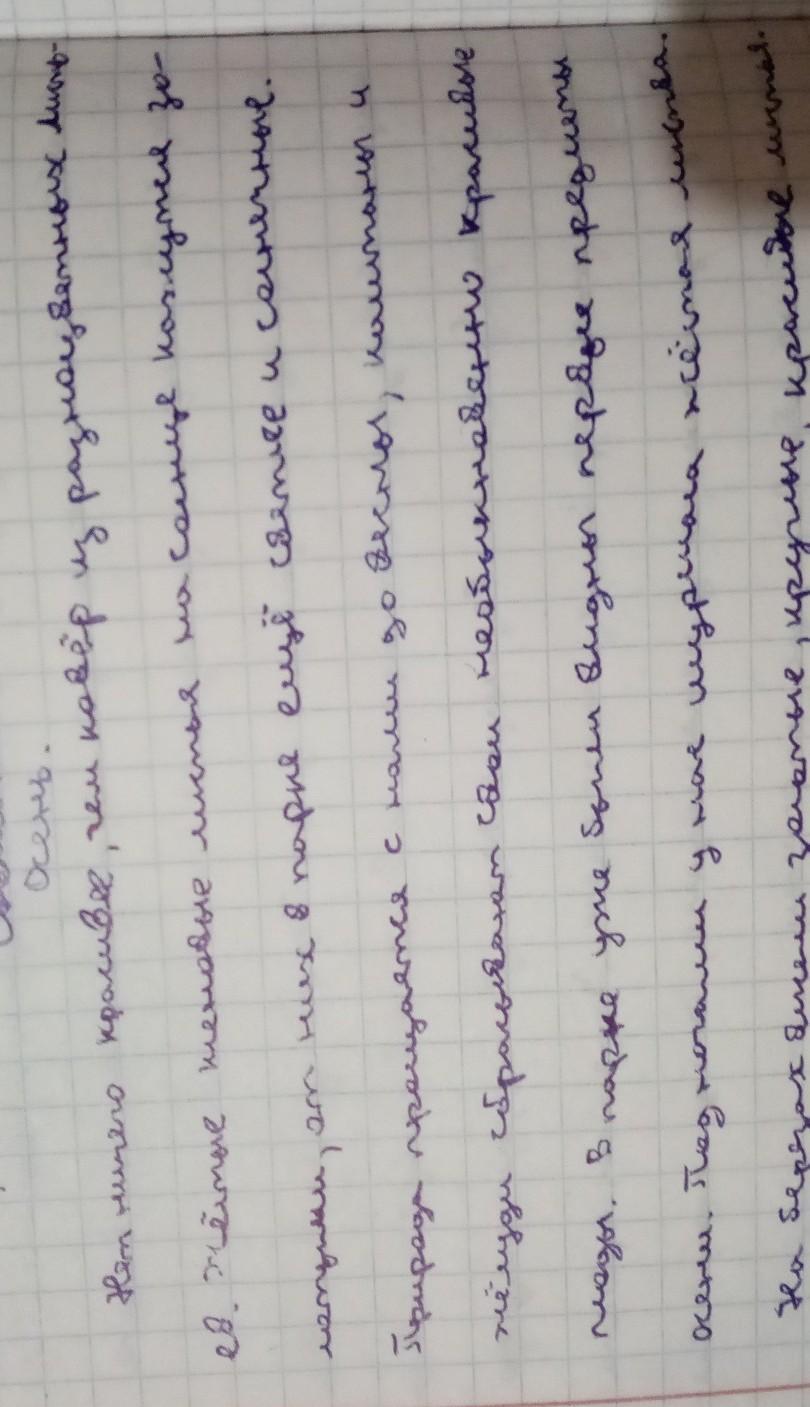 Осень.
Нет ничего красивее, чем ковёр из разноцветных листь-
ев. Жёлтые кленовые листья на солнце кажутся зо-
лотыми, от них в парке ещё светлее и солнечные.
Природа прощается с нами до весны, каштаны и
жёлуди сбрасывают свои необыкновенно красивые
плоды. В парке уже были видны первые предметы
осени. Под ногами у нас шуршала жёлтая листва.
На берёзах висели золотые, круглые, красивые листья.